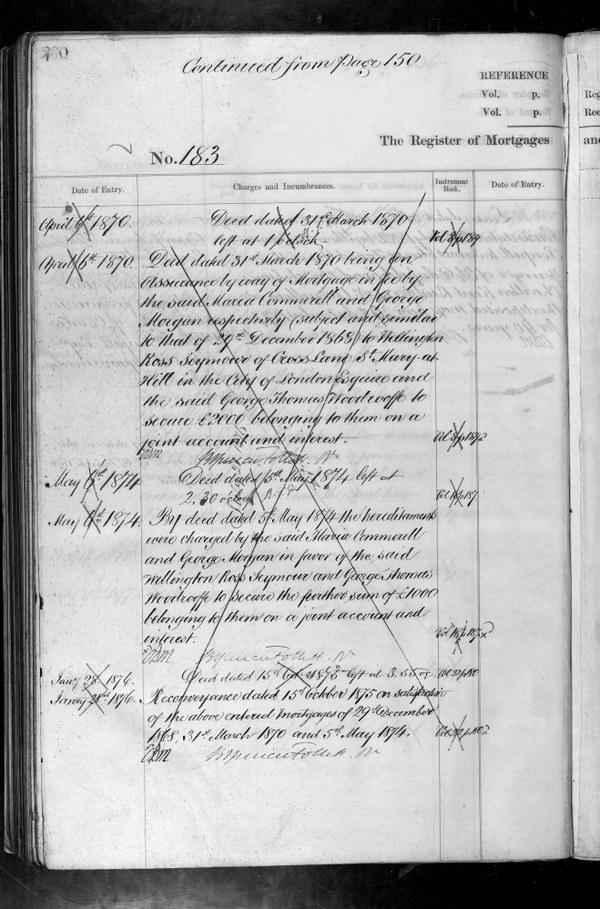 200
Continued from page 150
REFERENCE
Vol. p.
Vol. p.
The Register of Mortgages
No. 183
Date of Entry.
Charges and Incumbrances.
Instrument Book.
Date of Entry.
April 6th 1870.
Deed dated 31st March 1870
left at 1 o'clock
Vol 8 p 189
April 6th 1870.
Deed dated 31st March 1870 being an
Assurance by way of Mortgage in fee by
the said Maria Commerell and George
Morgan respectively (subject and similar
to that of 29th December 1868) to Wellington
Ross Seymour of Cross Lane St. Mary at
Hill in the City of London Esquire and
the said George Thomas Woodrooffe to
secure £2000 belonging to them on a
joint account and interest.
Vol 8 p 189
May 6th 1874
Deed dated 5th May 1874 left at
2.30 o'clock
Vol p 187
May 6th 1874.
By deed dated 5th May 1874 the hereditaments
were charged by the said Maria Commerell
and George Morgan in favor of the said
Wellington Ross Seymour and George Thomas
Woodrooffe to secure the further sum of £1000
belonging to them on a joint account and
interest.
Vol p 187
Brent Spencer Follett Rr
Jany 28 1876.
Deed dated 15th Oct 1875 left at 3.55 oc
Vol p 180
January 28th 1876.
Reconveyance dated 15th October 1875 on satisfaction
of the above entered mortgages of 29th December
1868, 31st March 1870 and 5th May 1874.
Vol p 180
Brent Spencer Follett Rr
Reg
Rec
and